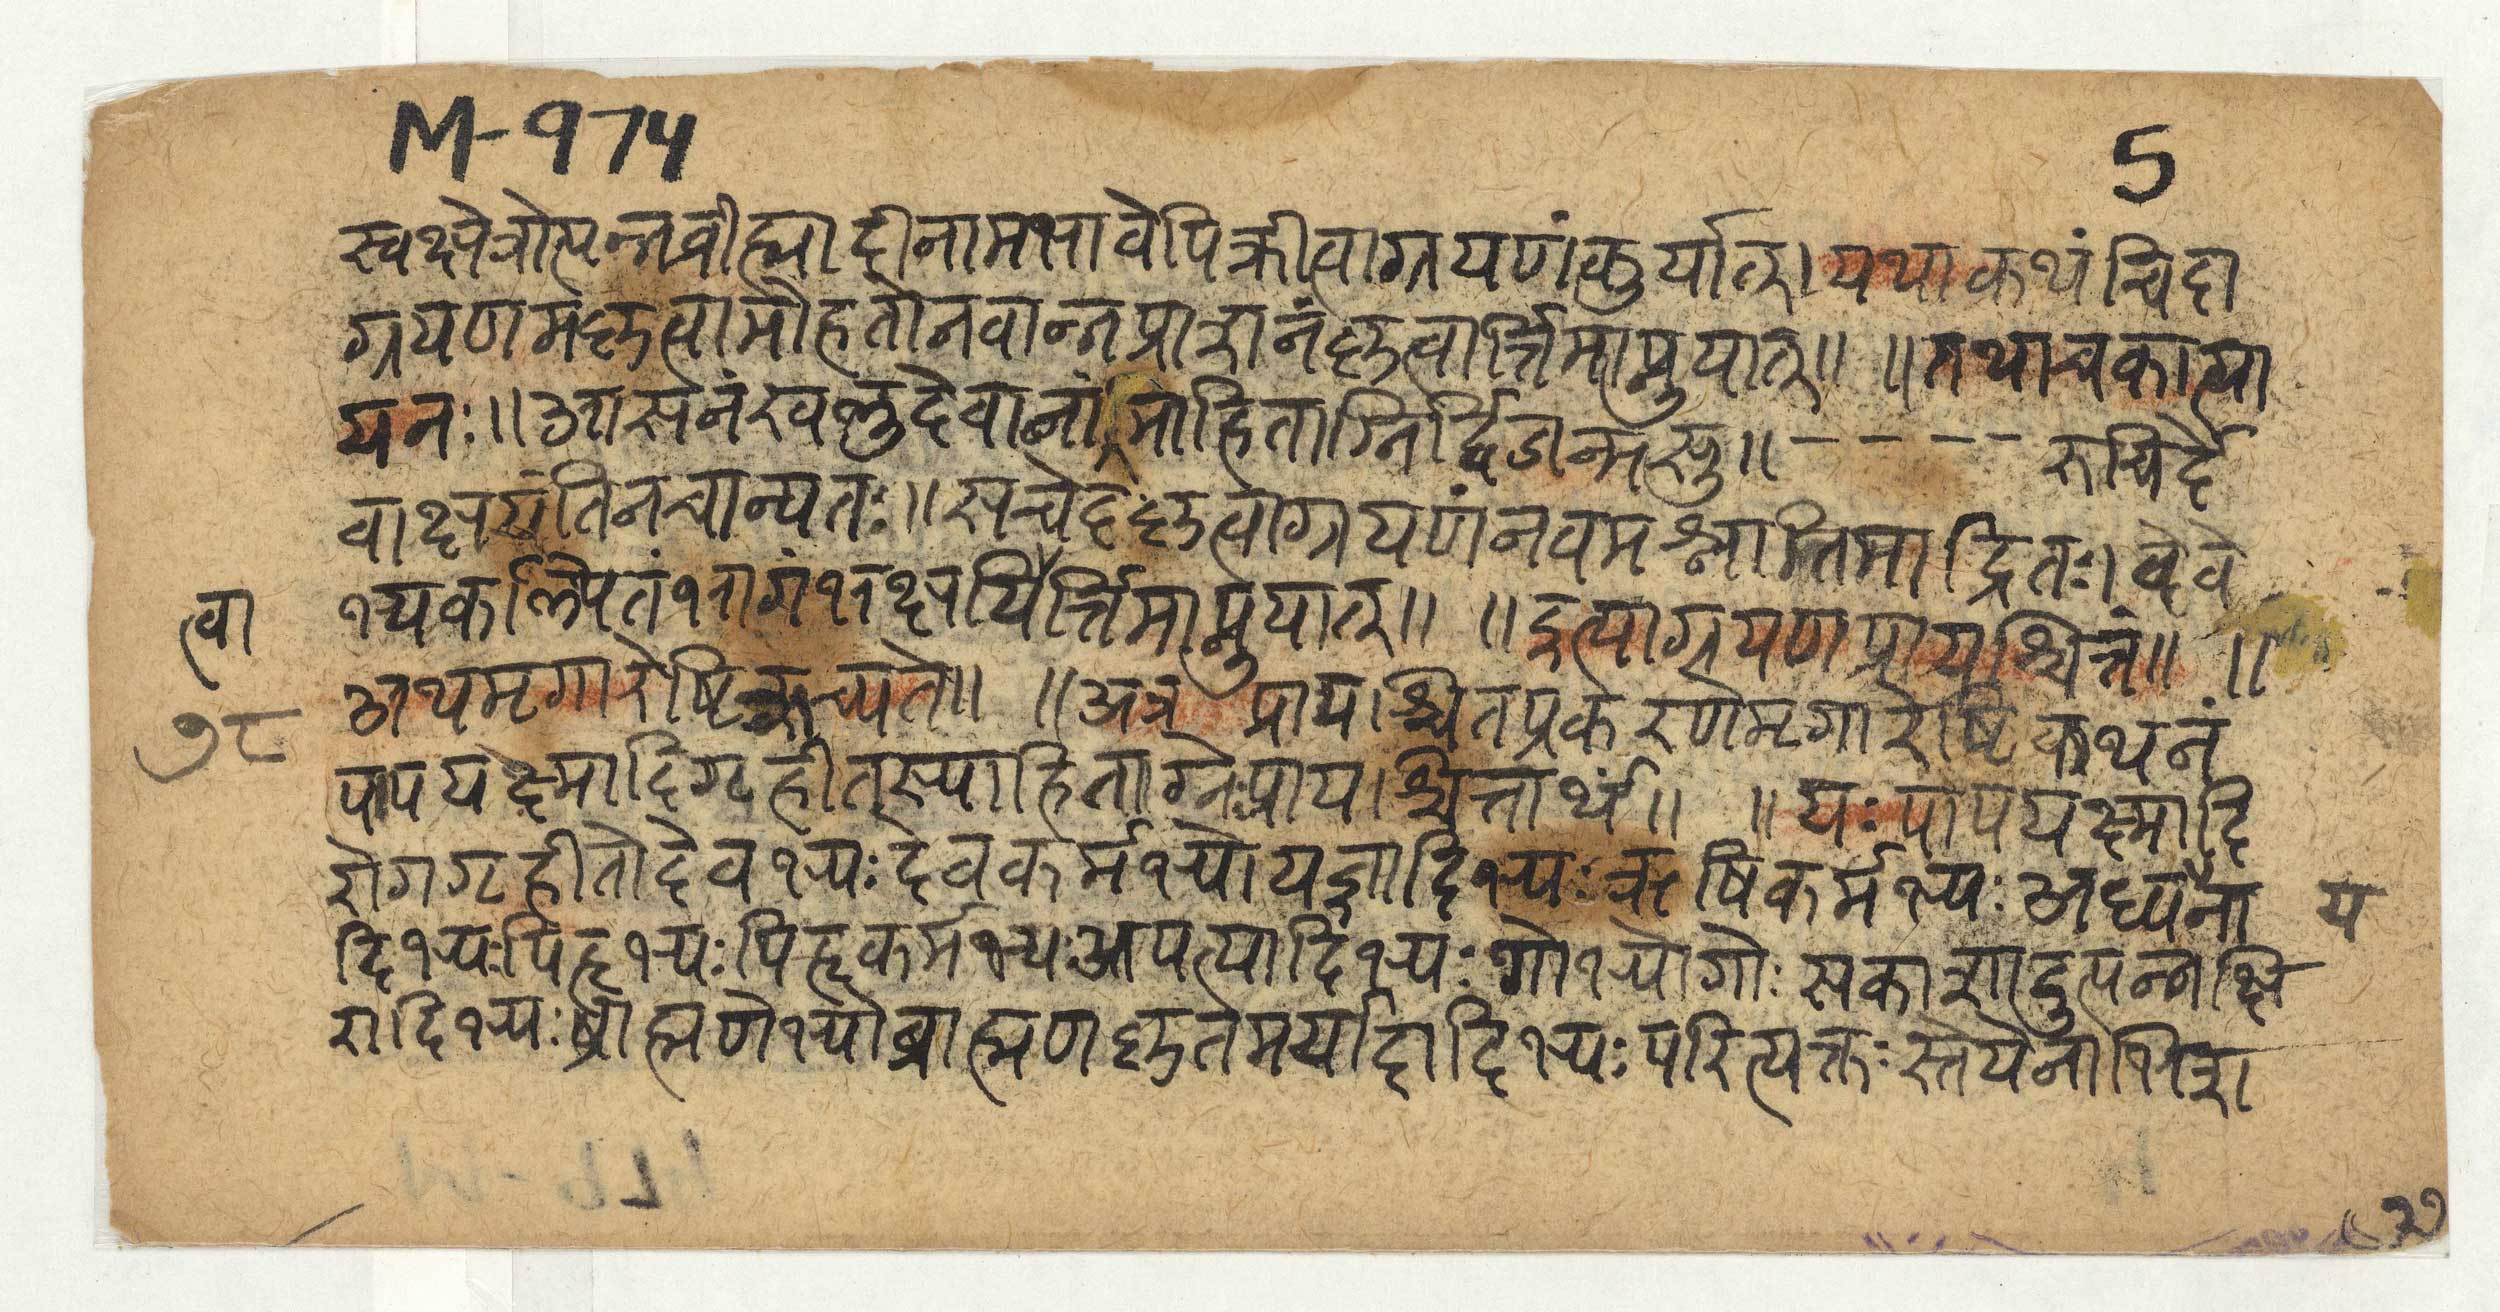 M-१७५
5
स्वक्षेत्रोत्पन्नव्रीह्यादीनामभावेपिक्रीत्वाग्रयणंकुर्यात्।यथाकथंचिदा
ग्रयणमकृत्वामोहतोनवान्नप्राशनंकृत्वार्त्तिमाप्नुयात्॥ ॥तथाचकात्या
यनः॥आसनंखलुदेवानामाहिताग्निर्द्विजन्मसु॥ - - - - रुचिर्दे
वाश्रयंतिनचान्यतः॥सचेदकृत्वाग्रयणंनवमश्नाति
भ्य र्त्तिमाप्नुयात्॥ ॥इत्याग्रयणप्रायश्चित्तं॥ ॥
त्वा
अथमृगारेष्टिरुच्यते॥ ॥अत्र प्रायश्चितप्रकरणेमृगारेष्टिकथनं
७८
पापयक्ष्मादिगृहीतस्याहिताग्नेःप्रायश्चित्तार्थं॥ ॥यःपापयक्ष्मादि
रोगगृहीतोदेवभ्यःदेवकर्मभ्योयज्ञादिभ्यःऋषिकर्मभ्यःअध्यना
य
दिभ्यःपितृभ्यःपितृकर्मभ्यःआपत्यादिभ्यःगोभ्योगोःसकाशादुत्पन्नक्षि
रादिभ्यःब्राह्मणेभ्योब्राह्मणकृतमर्यादादिभ्यःपरित्यक्तःस्तेयेनाभिश